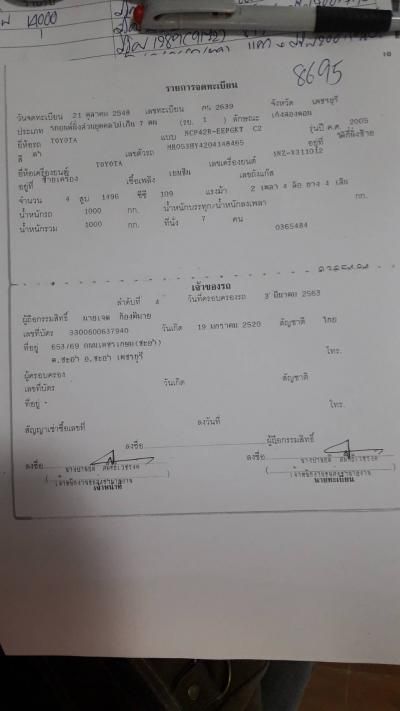 14000
1
8695
16
รายการจดทะเบียน
วันจดทะเบียน 21 ตุลาคม 2548 เลขทะเบียน กร 2639 จังหวัด เพชรบุรี
ประเภท รถยนต์นั่งส่วนบุคคลไม่เกิน 7 คน (รย. 1 ) ลักษณะ เก๋งสองตอน
ยี่ห้อรถ TOYOTA แบบ NCP42R-EEPGKT C2 รุ่นปี ค.ศ. 2005
สี ดำ เลขตัวรถ MR053BY4204148465 อยู่ที่
ยี่ห้อเครื่องยนต์ TOYOTA เลขเครื่องยนต์ 1NZ-X311012
อยู่ที่ ซ้ายเครื่อง เชื้อเพลิง เบนซิน เลขถังแก๊ส
จำนวน 4 สูบ 1496 ซีซี 109 แรงม้า 2 เพลา 4 ล้อ ยาง 4 เส้น
น้ำหนักรถ 1000 กก. น้ำหนักบรรทุก/น้ำหนักลงเพลา กก.
น้ำหนักรวม 1000 กก. ที่นั่ง 7 คน
0365484
เจ้าของรถ
ลำดับที่ 4 วันที่ครอบครองรถ 3 มีนาคม 2563
ผู้ถือกรรมสิทธิ์ นายเจต ก้องพิมาย
เลขที่บัตร 3300600637940 วันเกิด 19 มกราคม 2520 สัญชาติ ไทย
ที่อยู่ 653/69 ถนนเพชรเกษม(ชะอำ) โทร.
ต.ชะอำ อ.ชะอำ เพชรบุรี
ผู้ครอบครอง
เลขที่บัตร วันเกิด สัญชาติ
ที่อยู่ - โทร.
สัญญาเช่าซื้อเลขที่ ลงวันที่
ลงชื่อ ผู้ถือกรรมสิทธิ์
ลงชื่อ ลงชื่อ
เจ้าหน้าที่ นายทะเบียน